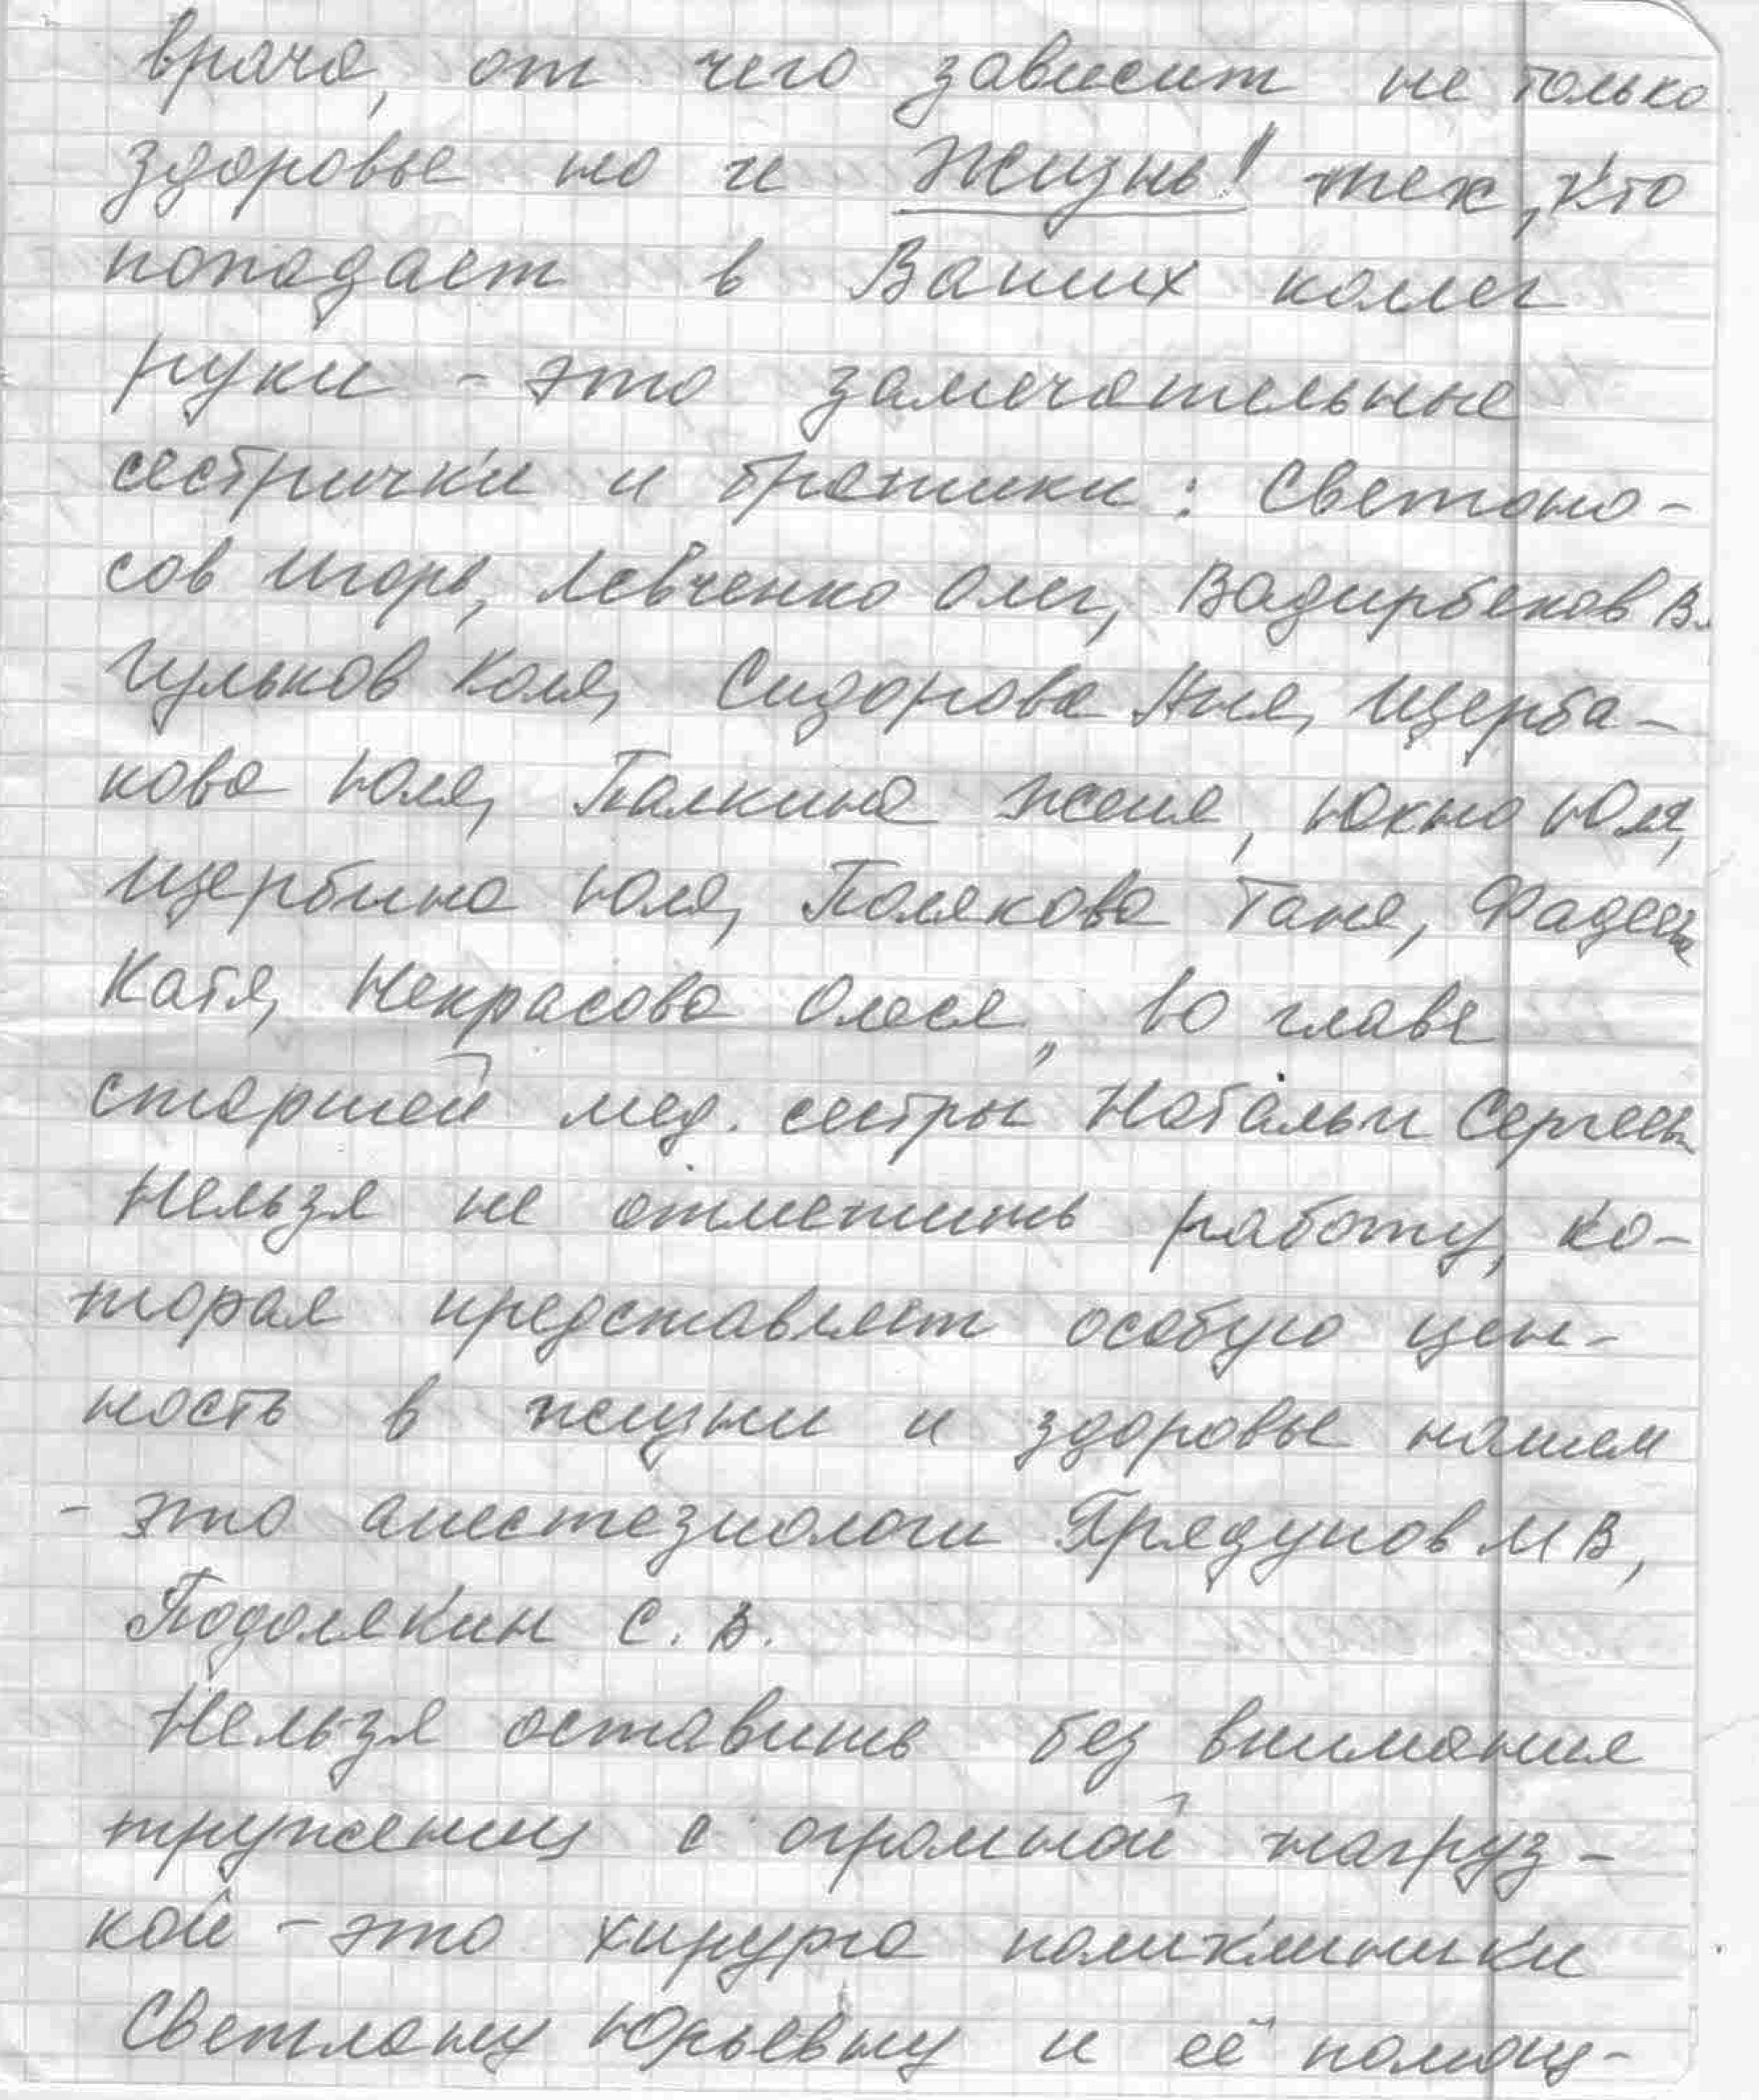 врача, от чего зависит не только
здоровье но и жизнь! тех, кто
попадает в Ваших коллег
руки - это замечательные
сестрички и братики: Светоно-
сов Игорь, Левченко Олег, Вадирбеков В.
Гульков Коля, Сидорова Аня, Щерба-
кова Юля, Палкина Женя, Юхно Юля,
Щербина Юля, Полякова Таня, Фадеева
Катя, Некрасова Олеся, во главе
старшей мед. сестры Натальи Сергеевн
Нельзя не отметить работу, ко-
торая представляет особую цен-
ность в жизни и здоровье нашем
- это анестезиологи Прядунов М В,
Подолякин С. В.
Нельзя оставить без внимания
тружениц с огромной нагруз-
кой - это хирурга поликлиники
Светлану Юрьевну и её помощ-